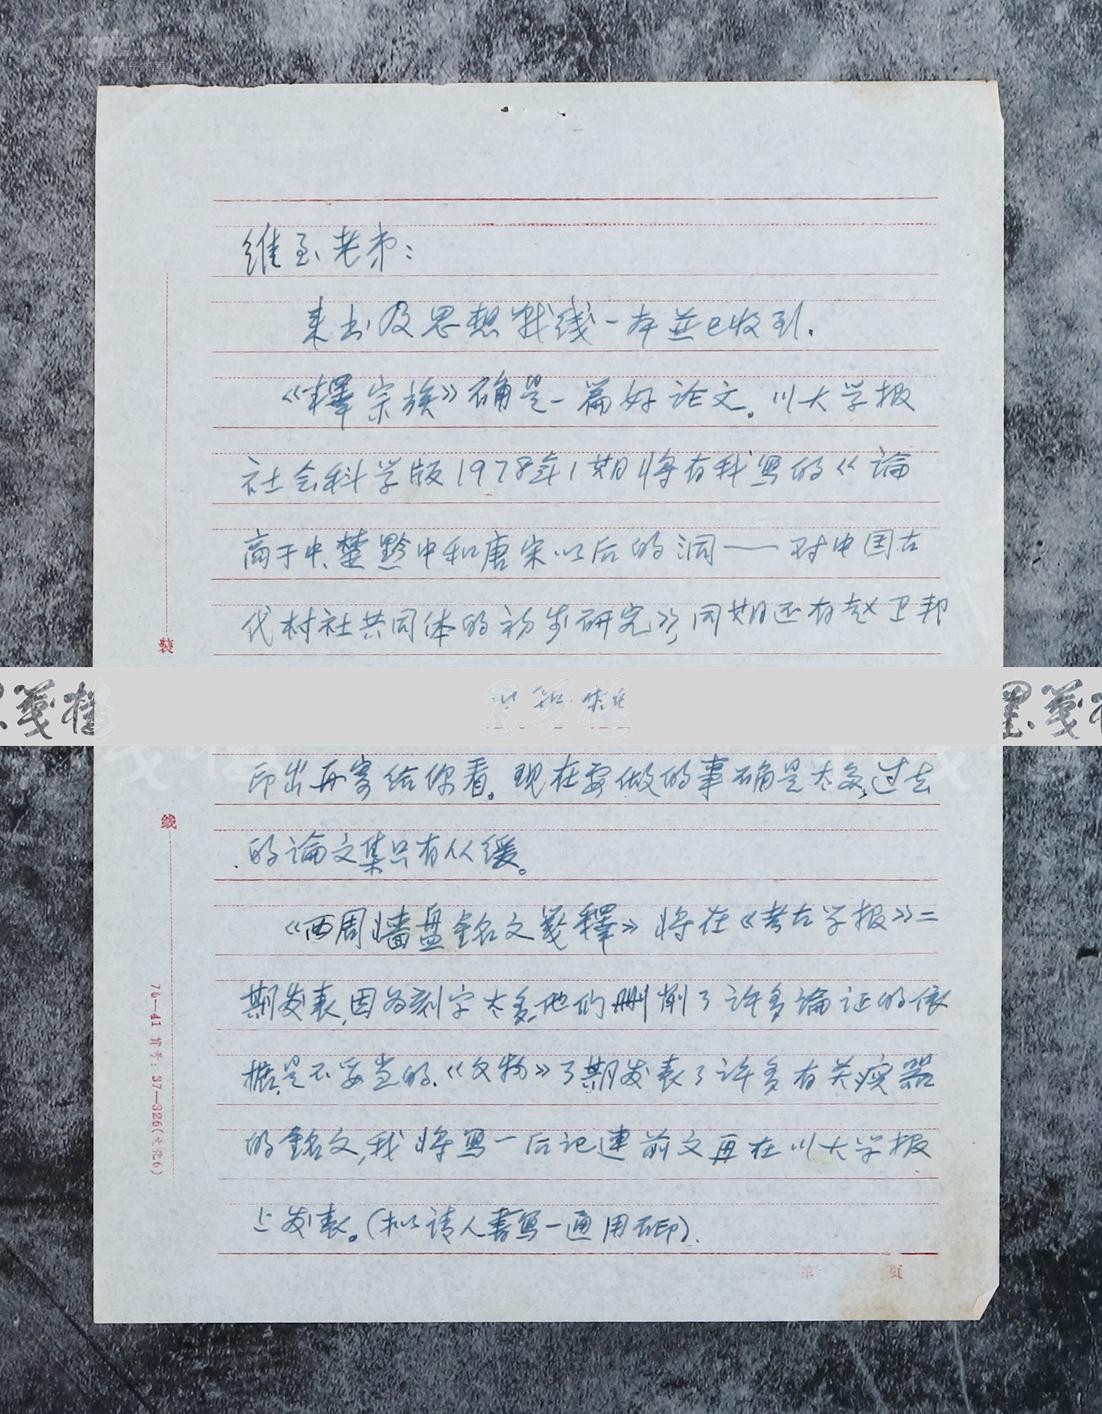 维至老弟：
来书及思想战线一本並已收到.
《釋宗族》确是一篇好论文。川大学报
社会科学版1978年1期将有我写的《論
商于中、楚黔中和唐宋以后的洞——对中国古
代村社共同体的初步研究》，同期还有赵卫邦
墨箋樓
印出再寄给你看。现在要做的事确是太多，过去
的論文集只有从缓。
《西周墙盘銘文箋釋》将在《考古学报》二
期发表，因为刻字太多，他们删削了许多論证的依
据，是不妥当的。《文物》3期发表了许多有关𤼈器
的銘文，我将写一后记連前文再在川大学报
上发表。(拟请人書写一通用石印).
裝
线
第 页